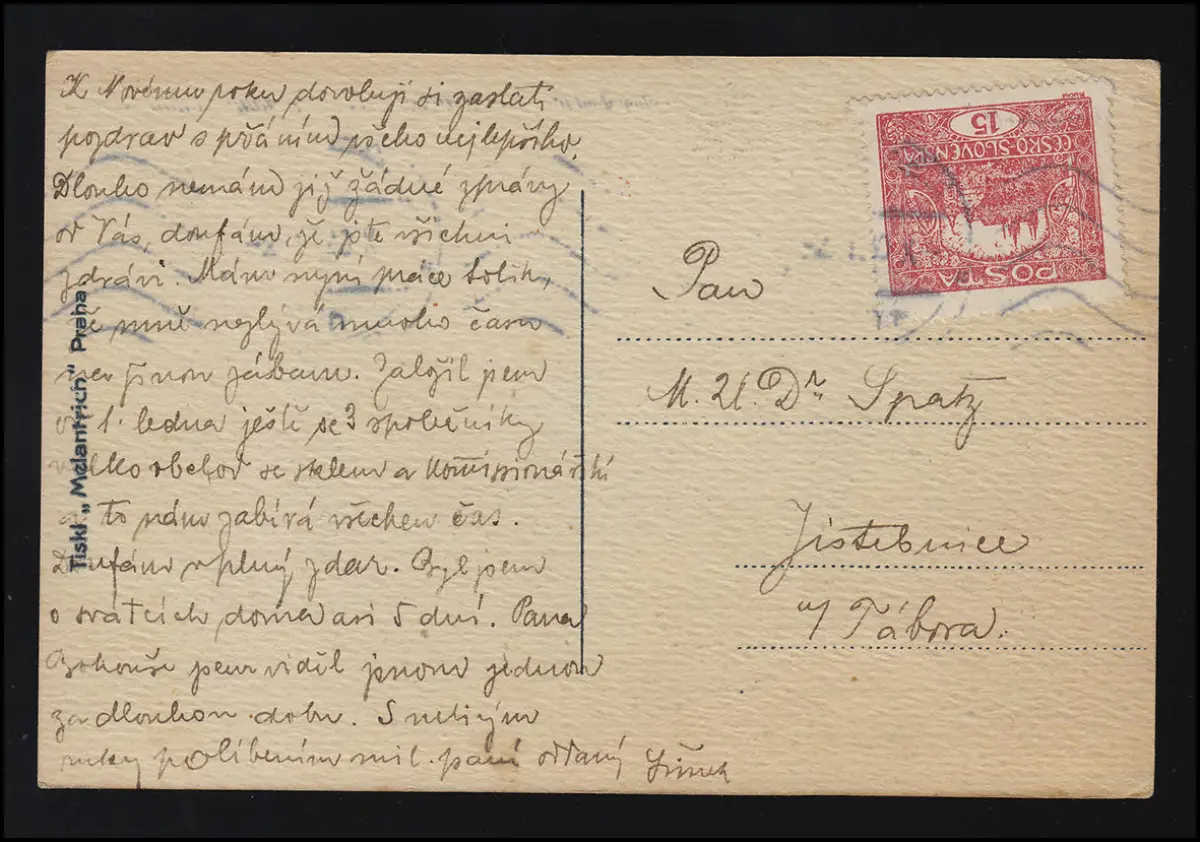 K Novému roku dovoluji si zaslati
pozdrav s přáním všeho nejlepšího.
Dlouho nemám již žádné zprávy
od Vás, doufám, že jste všichni
zdrávi. Mám nyní práce tolik,
že mně nezbývá mnoho času
na jinou zábavu. Založil jsem
1. ledna ještě se 3 společníky
velkoobchod se sklem a komissionářský
a to nám zabírá všechen čas.
Doufám v plný zdar. Byl jsem
o svátcích doma asi 5 dní. Pana
jsem viděl jenom jednou
za dlouhou dobu. S uctivým
ruky políbením mil. paní oddaný
Tiskl „Melantrich" Praha
15
ČESKO-SLOVENSKÁ
POŠTA
Pan
M. U. Dr Spatz
Jistebnice
u/ Tábora.